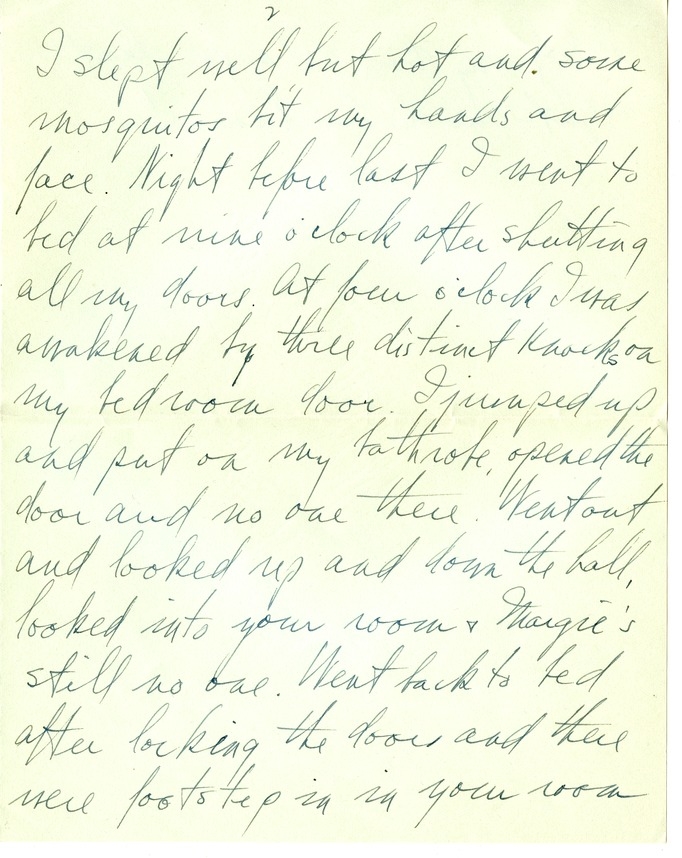 2
I slept well but hot and some
mosquitos bit my hands and
face. Night before last I went to
bed at nine o'clock after shutting
all my doors. At four o'clock I was
awakened by three distinct Knocks on
my bedroom door. I jumped up
and put on my bathrobe, opened the
door and no one there. Went out
and looked up and down the hall,
looked into your room & Margie's
still no one. Went back to bed
after locking the doors and there
were footsteps in in your room